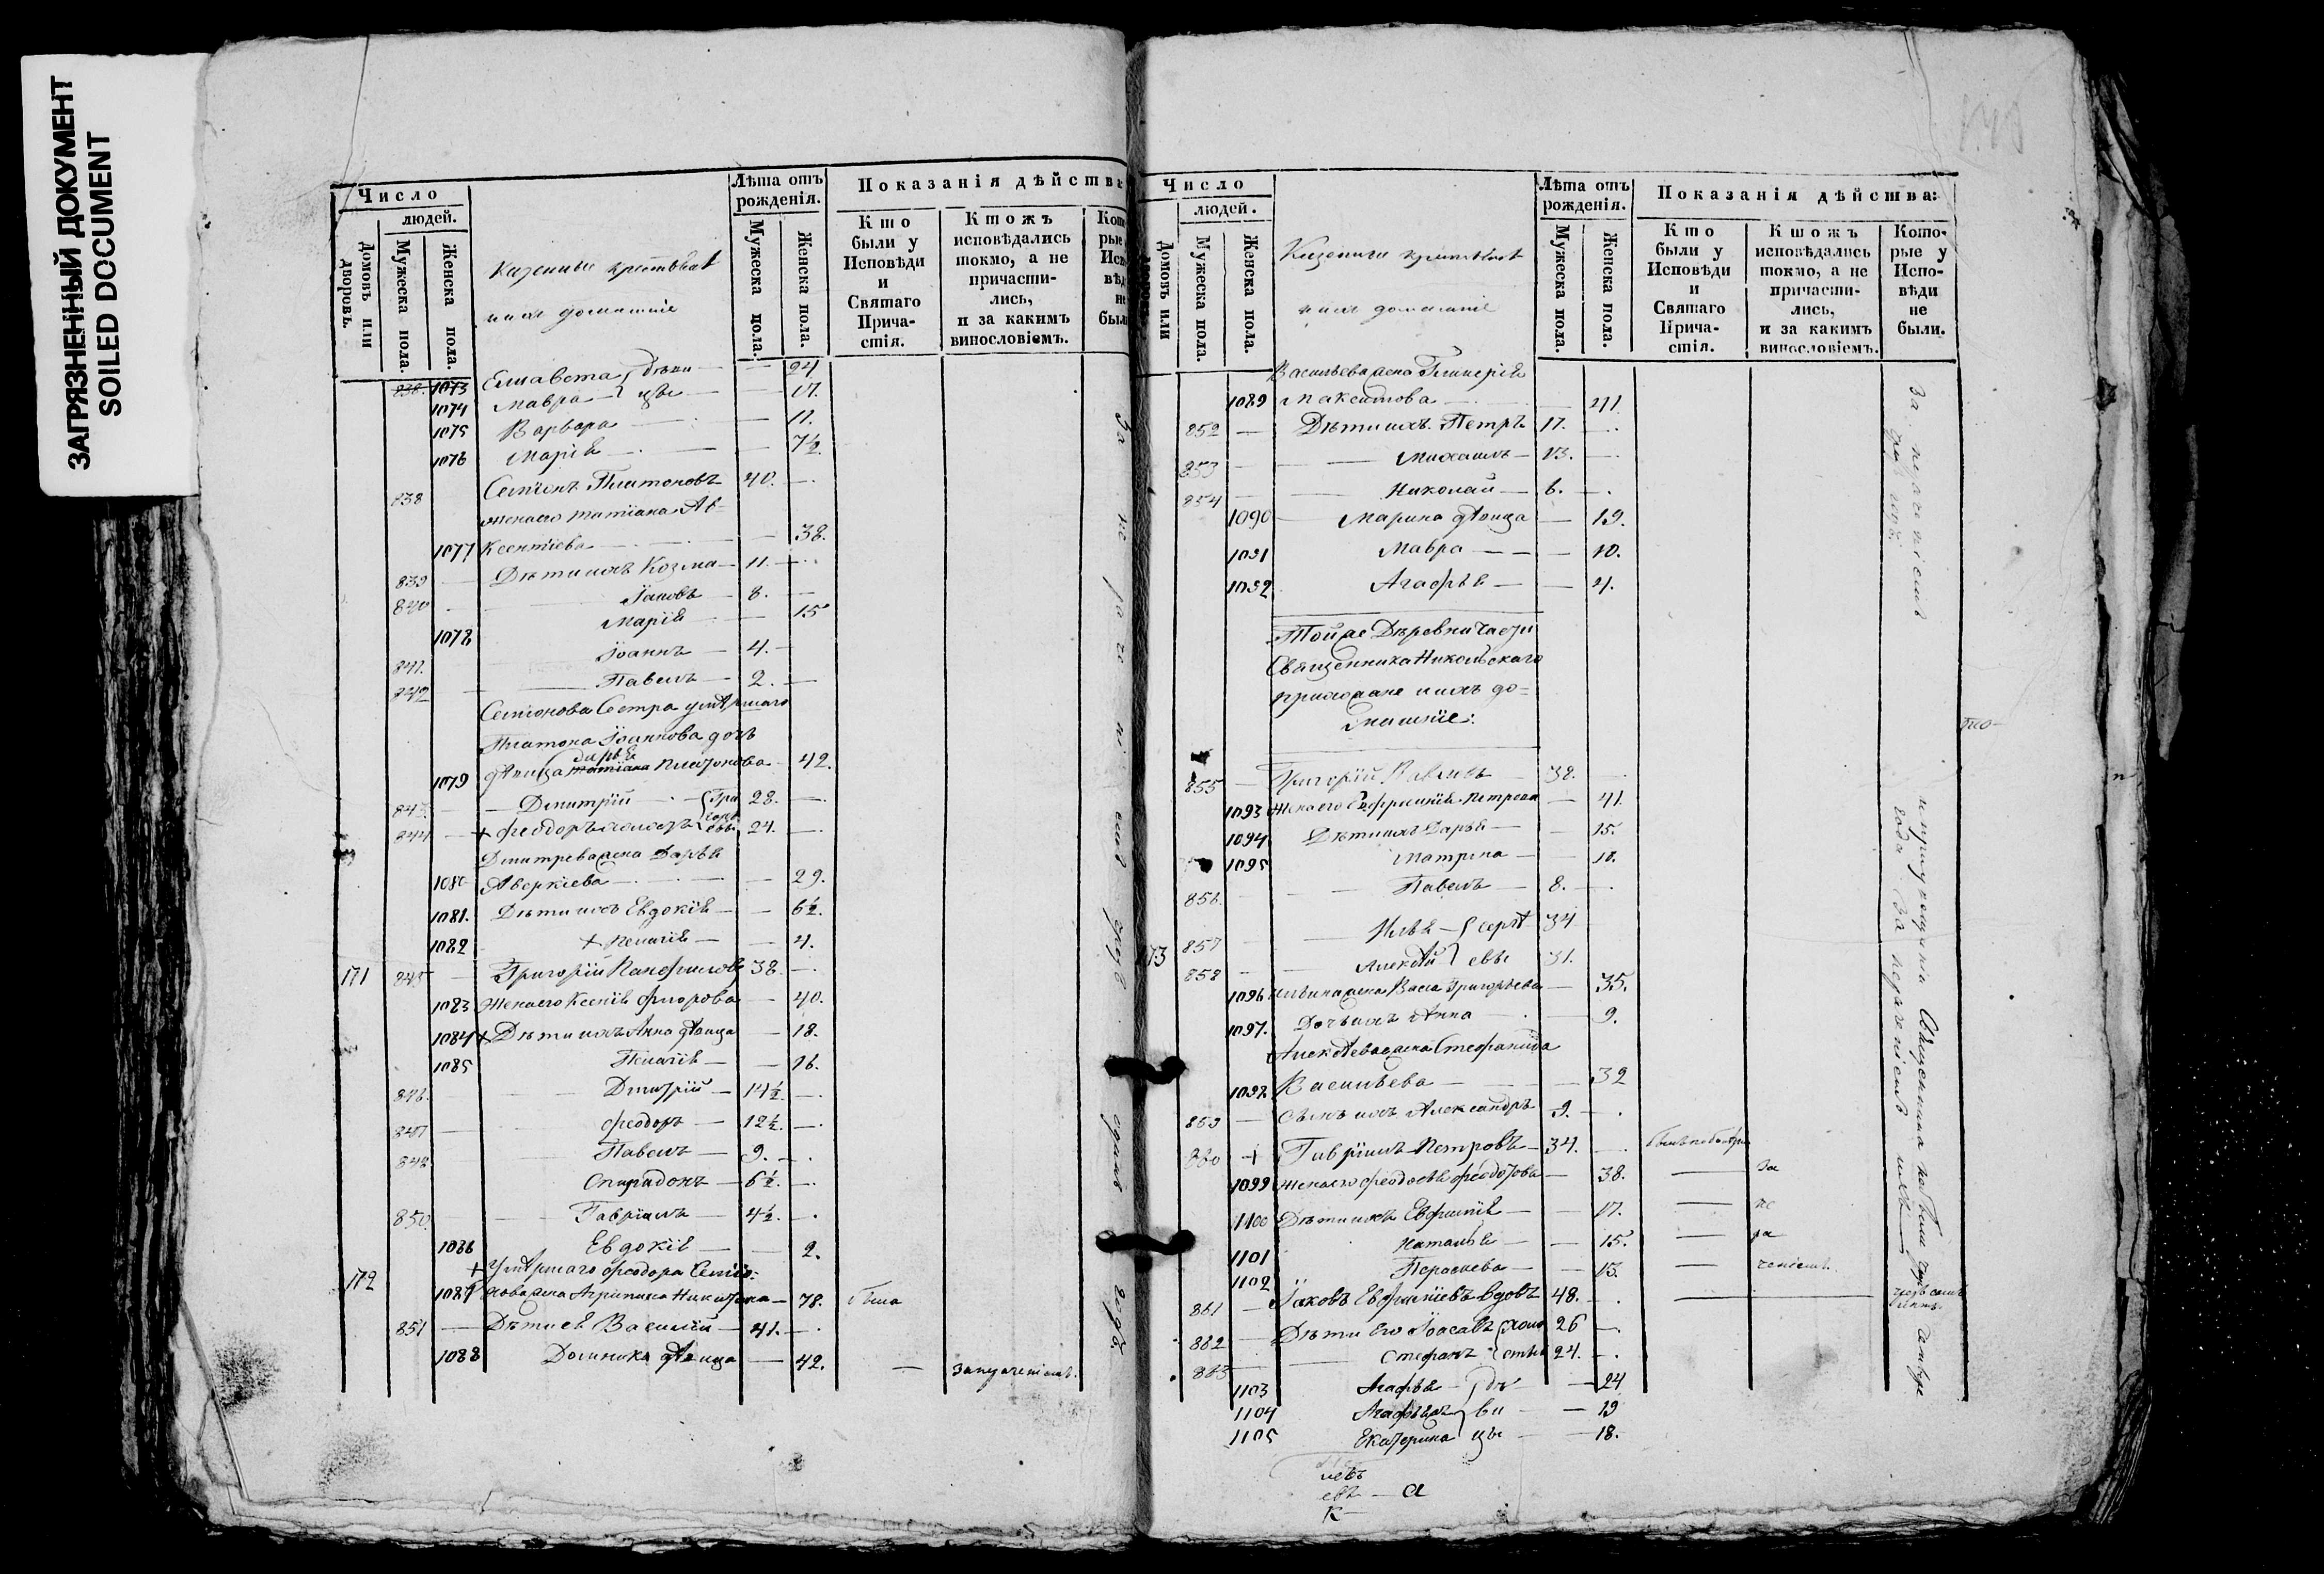 ЗАГРЯЗНЕННЫЙ ДОКУМЕНТ
SOILED DOCUMENT
Число
людей.
Домовъ или дворовъ.
Мужеска пола.
Женска пола.
Казенные
ихъ домашніе
Лѣта отъ рожденія.
Мужеска пола.
Женска пола.
Показанія дѣйства
Кто были у Исповѣди и Святаго Причастія.
Ктожъ исповѣдались токмо, а не причастились, и за какимъ винословіемъ.
838. 1073 Елисавета дѣви — 24
1074 Мавра цы — 17.
1075 Варвара — 11.
1076 Марія — 7½
838 Семіонъ Платоновъ 40. —
жена его Татіана Ав-
1077 ксентіева — 38.
839 — Дѣти ихъ Козма — 11. —
840 — Іаковъ — 8. —
1078 Марія — 15
841. Іоаннъ — 4. —
842 — Павелъ — 2. —
Семіонова Сестра умершаго
Платона Іоаннова дочь
Дарья
1079 дѣвица Татіана Платонова — 42.
843. — Димитрій — Гри 28. —
844 — + Феодоръ горь евы 24. —
Дмитрева жена Дарья
1080 Аверкіева — 29.
1081. Дѣти ихъ Евдокія — 6½.
1082 + Пелагія — 4.
171 845 — Григорій Панфиловъ 38. —
1083 Жена его Ксенія Флорова — 40.
1084 + Дѣти ихъ Анна дѣвица — 18.
1085 Пелагія — 16.
846. — Димитрій — 14½ —
847 — Феодоръ — 12½. —
848. Павелъ — 9. —
Спиридонъ — 6½. —
850. — Гавріилъ — 4½. —
1086 Евдокія — 2.
+ Умершаго Феодора Семіо-
172 1087 нова жена Агрипина Никитина — 78. была
851 — Дѣти ея Василій — 41. —
1088 Домника дѣвица — 42. —
Число
людей.
Домовъ или
Мужеска пола.
Женска пола.
Казенные
ихъ домашніе
Лѣта отъ рожденія.
Мужеска пола.
Женска пола.
Показанія дѣйства:
Кто были у Исповѣди и Святаго Причастія.
Ктожъ исповѣдались токмо, а не причастились, и за какимъ винословіемъ.
Которые у Исповѣди не были.
Васильева жена Гликерія
1089 Максимова — 41
852 — Дѣти ихъ Петръ 17. —
853 — Михаилъ — 13. —
854 — Николай — 6. —
1090 — Марина дѣвица — 19.
1091 Мавра — 10.
1092 Агафья — 4.
Той же Деревни части
Священника Никольскаго
прихожане и ихъ до=
машніе:
855 — Григорій Павловъ 38. —
1093 Жена его Евфросинія Петрова — 41.
1094 Дѣти ихъ Дарья — 15.
1095 Матрона — 10.
856. — Павелъ — 8. —
173 857 — Илья — серге 34
858 — Алексѣй евы 31.
1096 Ильина жена Васса Григорьева — 35.
1097. Дочь ихъ Анна — 9.
Алексѣева жена Стефанида
1098 Васильева — 32
859 — Сынъ ихъ Александръ 9. —
860 + Гавріилъ Петровъ — 34. —
1099 Жена его Феодосья Феодорова — 38. — За
1100 Дѣти ихъ Евфимія — 17. — не
1101 Наталья — 15. — ра
1102 Параскева — 13. — ченіемъ.
861 — Іаковъ Евфиміевъ вдовъ 48. —
862 — Дѣти Его Іоасафъ холо 26 —
863 — Стефанъ стые 24. —
1103 Агафья — дѣ — 24
1104 Агафья ви — 19
1105 Екатерина цы — 18.